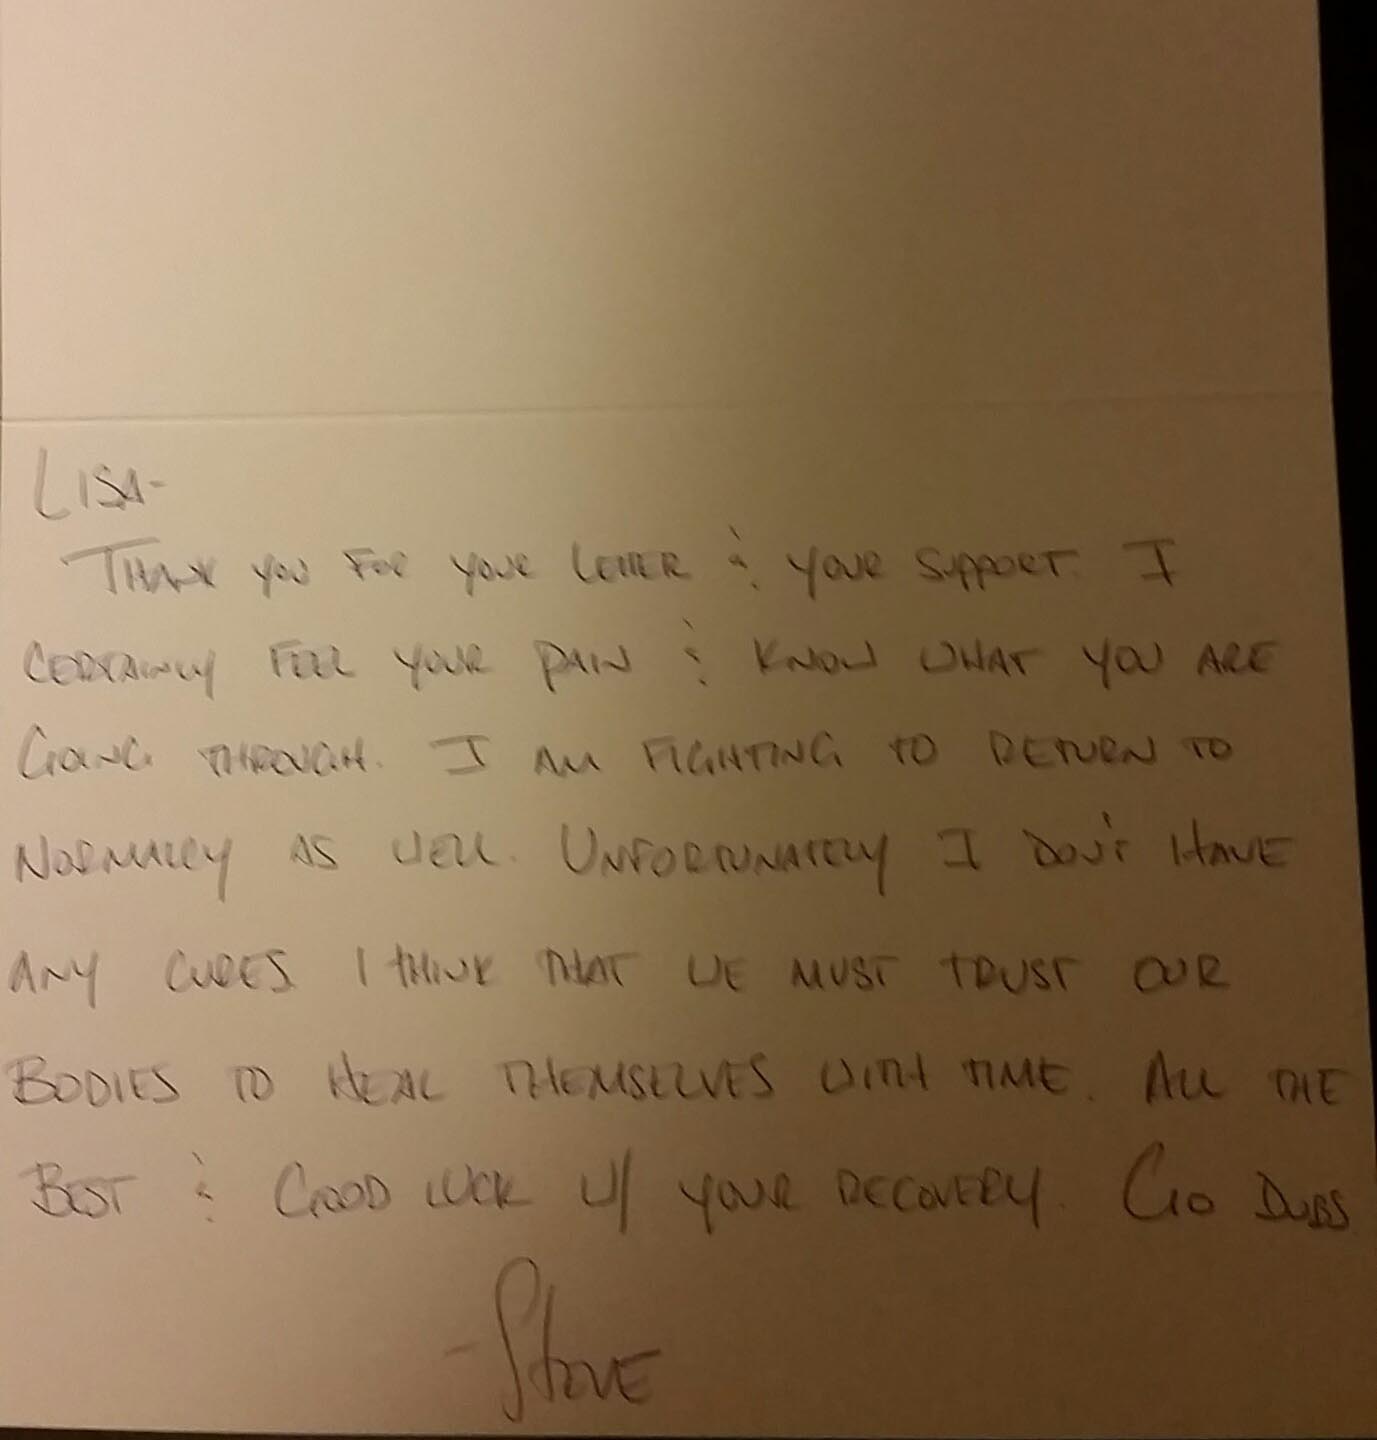 LISA-
THANK YOU FOR YOUR LETTER & YOUR SUPPORT. I
CERTAINLY FEEL YOUR PAIN & KNOW WHAT YOU ARE
GOING THROUGH. I AM FIGHTING TO RETURN TO
NORMALCY AS WELL. UNFORTUNATELY I DON'T HAVE
ANY CURES. I THINK THAT WE MUST TRUST OUR
BODIES TO HEAL THEMSELVES WITH TIME. ALL THE
BEST & GOOD LUCK W/ YOUR RECOVERY. GO DUBS
-STEVE